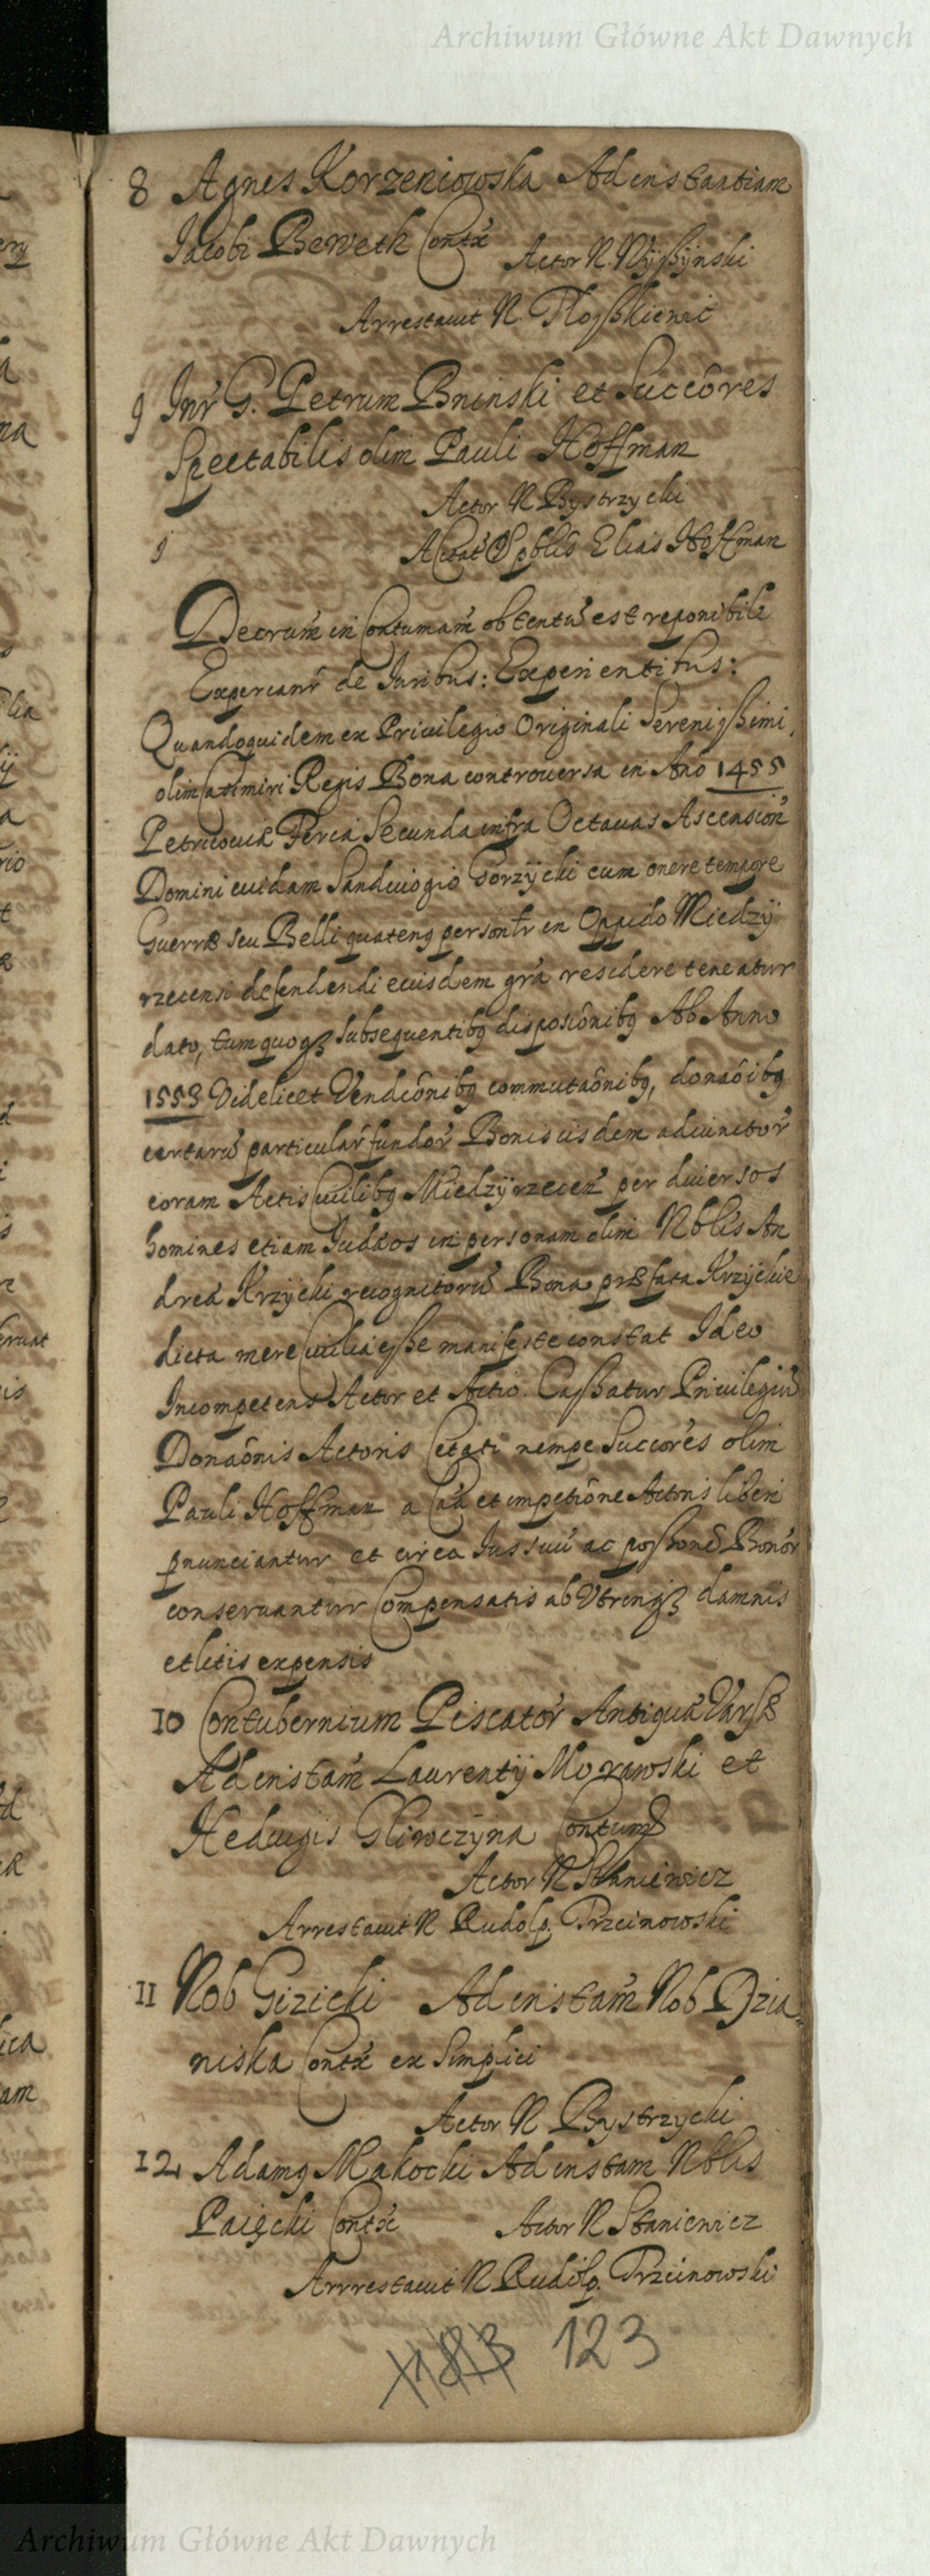 Archiwum Główne Akt Dawnych
8 Agnes Korzeniowska Ad instantiam
Jacobi Beweth Contx
Actor N. Wyszynski
Arrestavit N. Ploszkiewic
9 Inr G. Petrum Bninski et Succores
Spectabilis olim Pauli Hoffman
Actor N Bystrzycki
Elias Hoffman
Decrum in Contumam obtentu est reponibile
Experianr de Juribus: Experientibus:
Quandoquidem ex Privilegio Originali Serenissimi
olim Casimiri Regis Bona controversa in Ano 1455
Petricoviae Feria Secunda infra Octavas Ascension
Domini cuidam Sandivogio Gorzycki cum onere tempore
Guerrae seu Belli quatenq personlr in Oppido Miedzÿ
rzecensi defendendi eiusdem gra residere teneatur
dato, tum quoqz subsequentibq disposionibq Ab Anno
1553 Videlicet Vendionibq commutaonibq, donaoibq
certaru particular fundor Bonis iisdem adiunctor
coram Actis Civilibq Miedzÿrzecen per diversos
homines etiam Judaos in personam olim Nblis An
drea Krzÿcki recognitoru Bona praefata Krzÿckie
dicta mere Civilia esse manifeste constat Ideo
Incompetens Actor et Actio. Cassatur Privilegiu
Donaonis Actoris Citati nempe Succores olim
Pauli Hoffman a Ca et impetione Actoris liberi
pnunciantur et circa Jus suu ac possione Bonor
conservantur Compensatis ab Utrinqz damnis
et litis expensis
10 Contubernium Piscator Antiqua Varsae
Ad instam Laurentÿ Morawski et
Hedvigis Gliwczyna Contum
Actor N Staniewicz
Arrestavit N Rudolp. Trzcinowski
11 Nob Gizicki Ad instam Nob Dzia
niska Contx ex Simplici
Actor N Bystrzycki
12 Adamq Makocki Ad instam Nblis
Paięcki Contx Actor N Staniewicz
Arrrestavit N Rudolp. Trzcinowski
123
Archiwum Główne Akt Dawnych